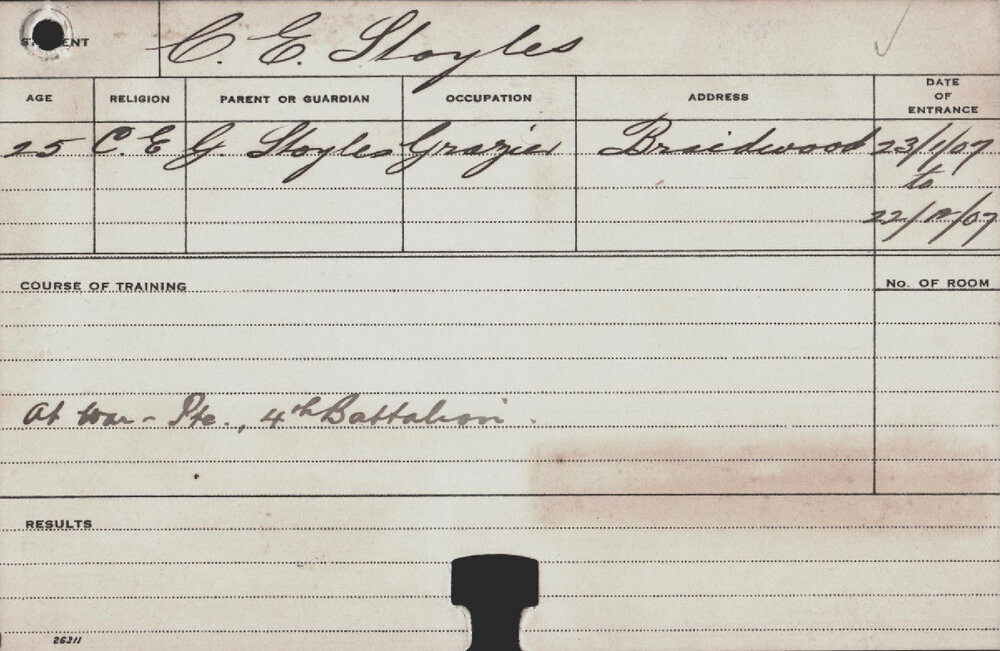 STUDENT C. E. Stoyles
AGE RELIGION PARENT OR GUARDIAN OCCUPATION ADDRESS DATE OF ENTRANCE
25 C.E G. Stoyles Grazier Braidwood 23/1/07
to
22/12/07
COURSE OF TRAINING No. OF ROOM
At War - Pte., 4th Battalion.
RESULTS
26311